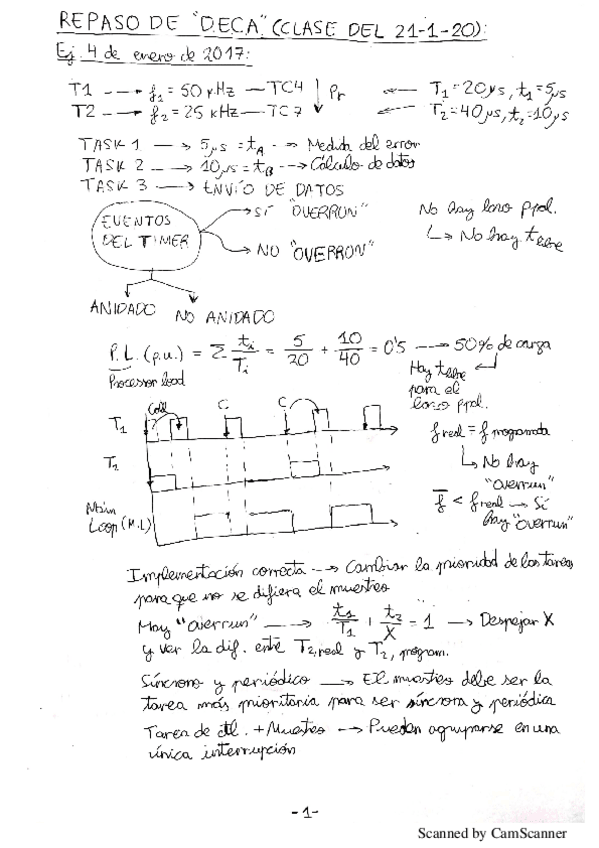 REPASO DE "DECA" (CLASE DEL 21-1-20):
Ej. 4 de enero de 2017:
T1 ---> f₁ = 50 kHz — TC4 ↓ Pr ← T₁=20μs, t₁=5μs
T2 ---> f₂ = 25 kHz — TC7 ← T₂=40μs, t₂=10μs
TASK 1 —> 5μs = tA --> Medida del error
TASK 2 --> 10μs = tB --> Cálculo de datos
TASK 3 —> ENVÍO DE DATOS
EVENTOS DEL TIMER
SÍ "OVERRUN"
NO "OVERRUN"
No hay lazo ppal.
↳ No hay tlibre
ANIDADO NO ANIDADO
P.L. (p.u.) = Σ ti/Ti = 5/20 + 10/40 = 0'5 ---> 50% de carga
Processor load
Hay tlibre
para el
lazo ppal.
C C
T₁
T₂
Main
Loop (M.L)
f real = f programada
↳ No hay
"overrun"
f < f real → Sí
hay "overrun"
Implementación correcta --> Cambiar la prioridad de las tareas
para que no se difiera el muestreo
Hay "overrun" ---> t₁/T₁ + t₂/X = 1 —> Despejar X
y ver la dif. entre T₂,real y T₂,program.
Síncrono y periódico —> El muestreo debe ser la
tarea más prioritaria para ser síncrona y periódica
Tarea de ctl. + Muestreo --> Pueden agruparse en una
única interrupción
-1-
Scanned by CamScanner